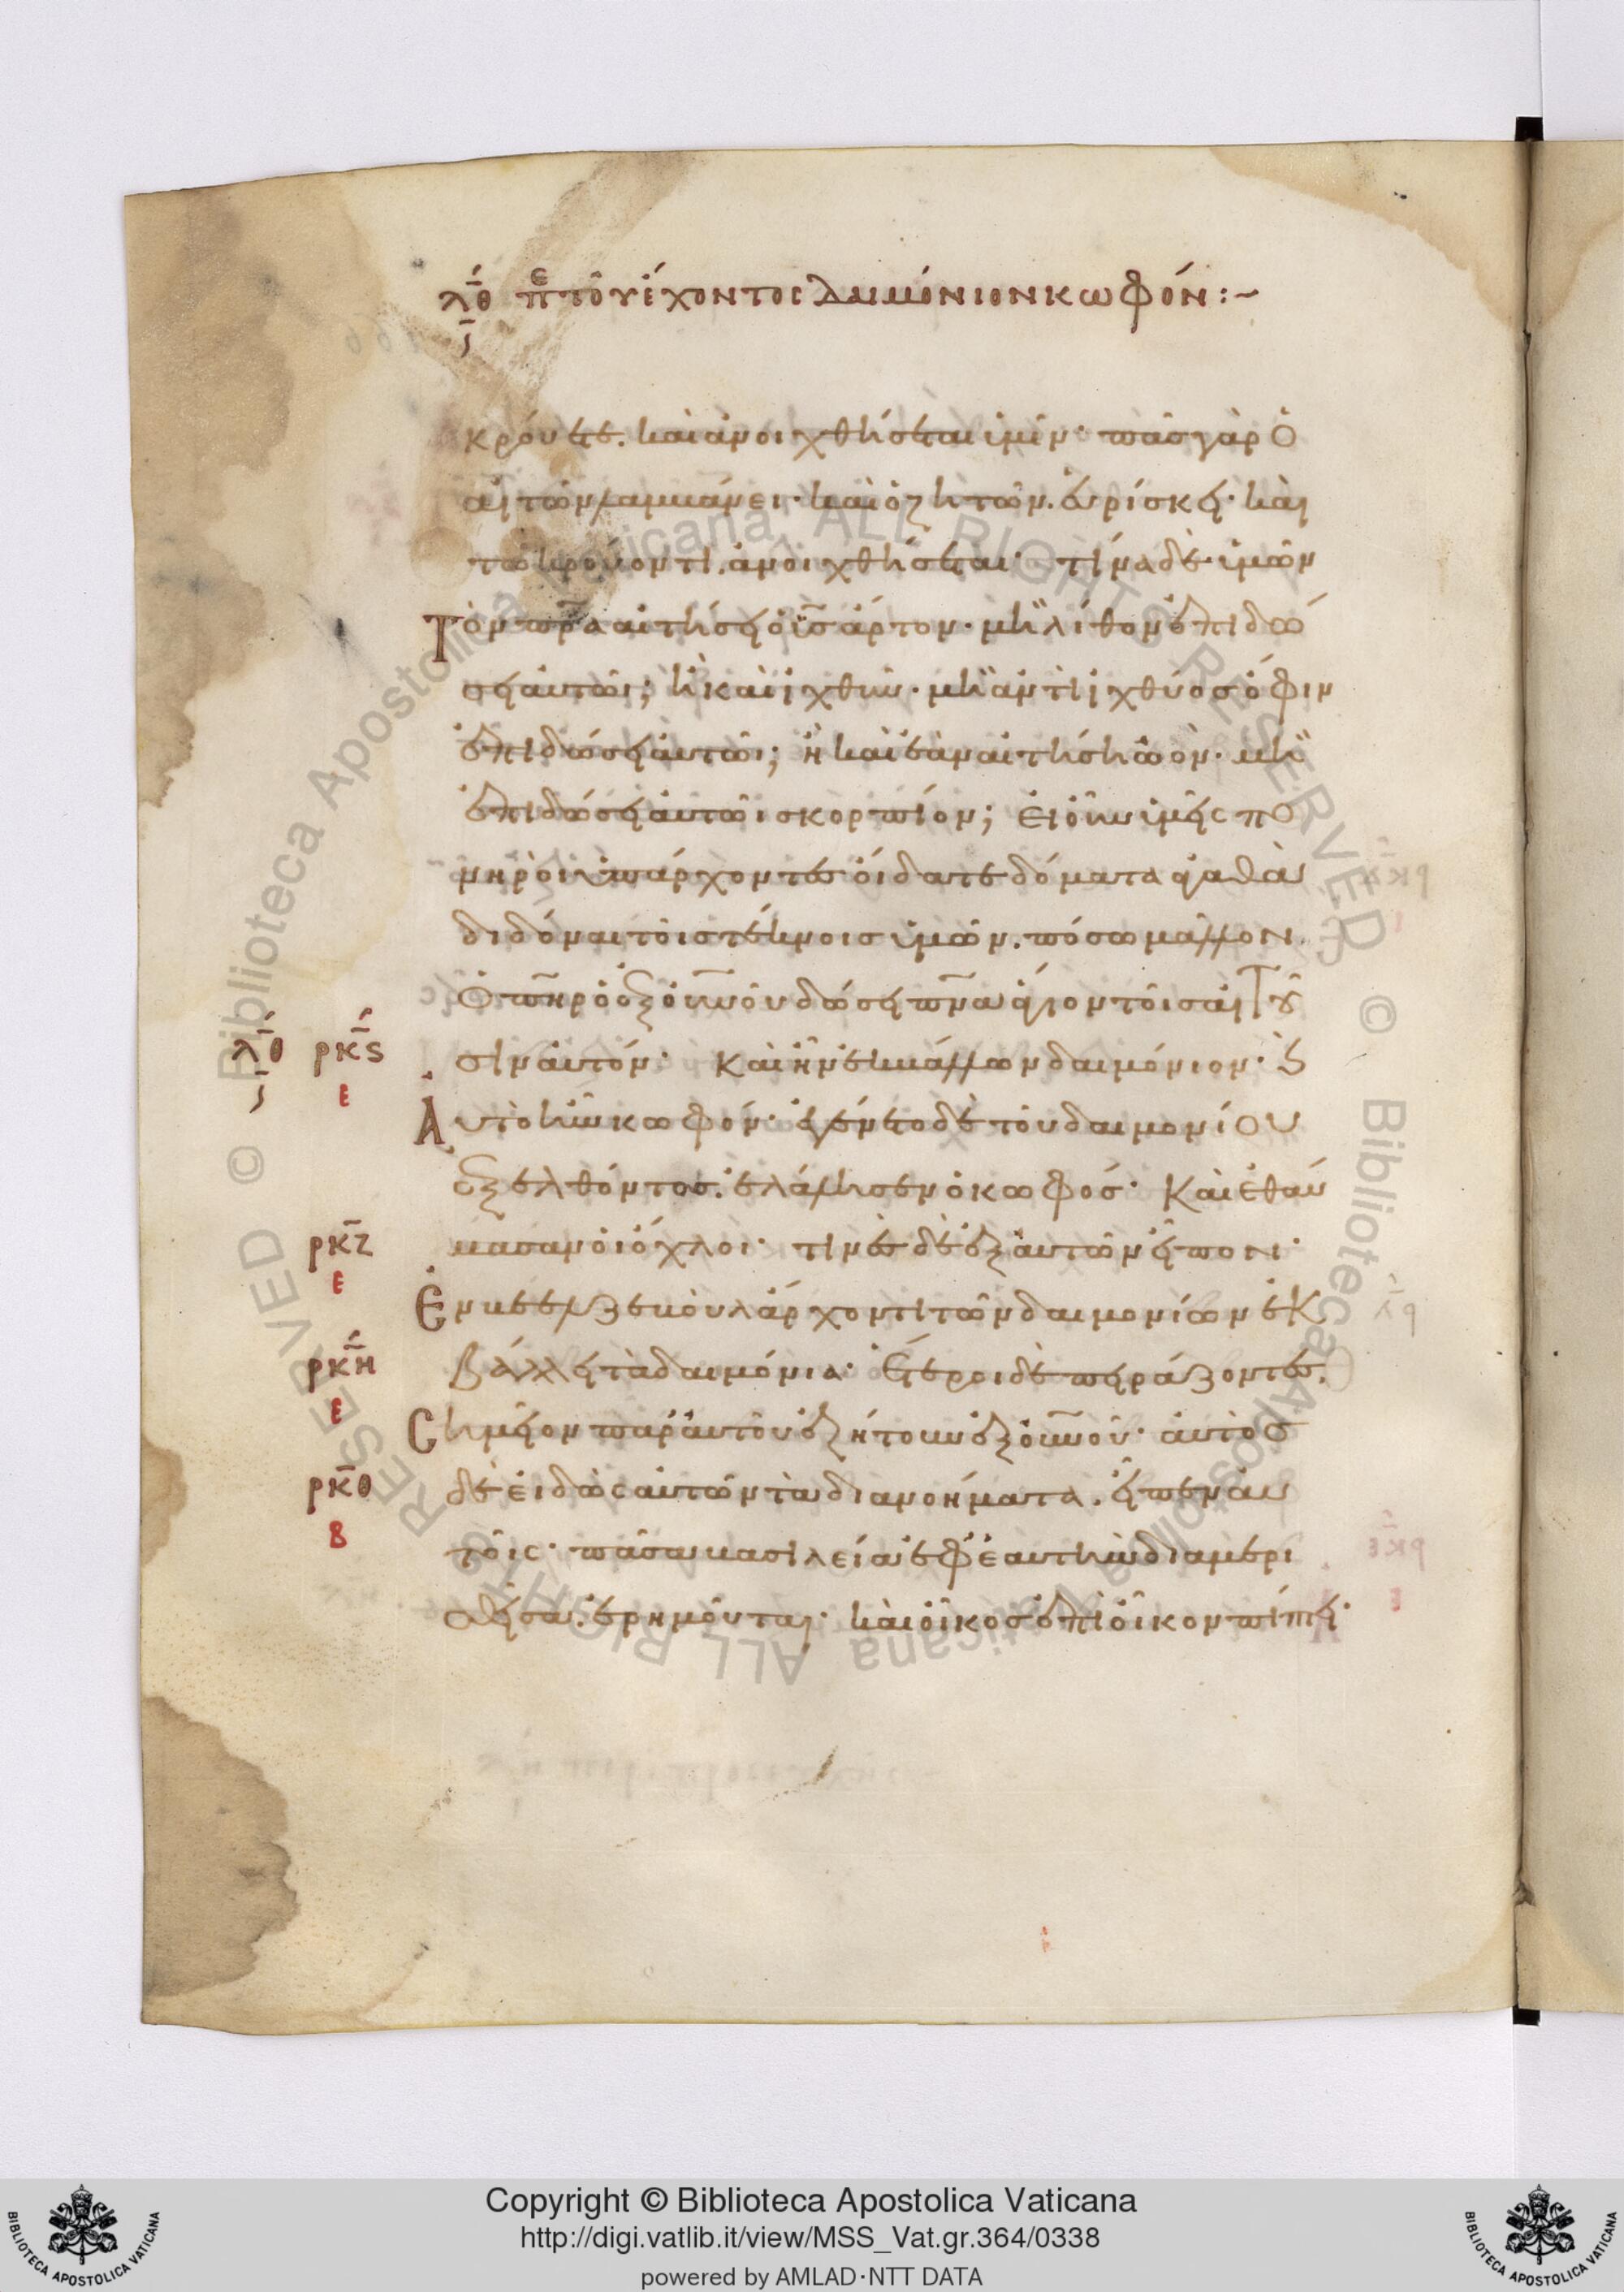 λθ πε τοῦ ἔχοντος δαιμόνιον κωφόν :~
κρούετε. καὶ ἀνοιχθήσεται ὑμῖν· πᾶς γὰρ ὁ
αἰτῶν λαμβάνει· καὶ ὁ ζητῶν. εὑρίσκει· καὶ
τῶ κρούοντι. ἀνοιχθήσεται· τίνα δὲ ὑμῶν
Τὸν πρ̅α αἰτήσει ὁ ϋ̅ς ἄρτον· μὴ λίθον ἐπιδώ
σει αὐτῶι; ἢ καὶ ἰχθῦν· μὴ ἀντὶ ἰχθύος ὄφιν
ἐπιδώσει αὐτῶι; ἢ καὶ ἐὰν αἰτήση ὠόν· μὴ
ἐπιδώσει αὐτῶι σκορπίον; εἰ οὖν ὑμεῖς πο
νηροὶ ὑπάρχοντες οἴδατε δόματα ἀγαθὰ
διδόναι τοῖς τέκνοις ὑμῶν. πόσω μᾶλλον
Ὁ π̅η̅ρ ὁ ἐξ οὐ̅νοῦ δώσει π̅ν̅α ἅγιον τοῖς αἰτοῦ
λθ ρκϛ σιν αὐτόν· Καὶ ἦν ἐκβάλλων δαιμόνιον· κ
ε Αὐτὸ ἦν κωφόν· ἐγένετο δὲ τοῦ δαιμονίου
ἐξελθόντος. ἐλάλησεν ὁ κωφός· Καὶ ἐθαύ
ρκζ μασαν οἱ ὄχλοι· τινὲς δὲ ἐξ αὐτῶν εἶπον·
ε Ἐν βεελζεβοὺλ ἄρχοντι τῶν δαιμονίων ἐκ
ρκη βάλλει τὰ δαιμόνια· Ἕτεροι δὲ πειράζοντες.
ε Σημεῖον παρ' αὐτοῦ ἐζήτουν ἐξ οὐ̅νοῦ· αὐτὸς
ρκθ δὲ εἰδὼς αὐτῶν τὰ διανοήματα. εἶπεν αὐ
β τοῖς· πᾶσα βασιλεία ἐφ' ἑαυτὴν διαμερι
σθεῖσα. ἐρημοῦται· καὶ οἶκος ἐπὶ οἶκον πίπτει·
© Biblioteca Apostolica Vaticana ALL RIGHTS RESERVED © Biblioteca Apostolica Vaticana ALL RIGHTS RESERVED
Copyright © Biblioteca Apostolica Vaticana
http://digi.vatlib.it/view/MSS_Vat.gr.364/0338
powered by AMLAD·NTT DATA
BIBLIOTECA APOSTOLICA VATICANA
BIBLIOTECA APOSTOLICA VATICANA